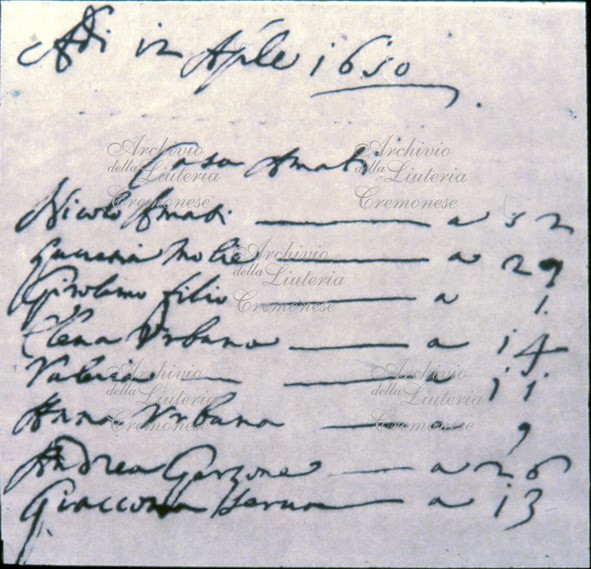 Adi 12 Aple 1650
Casa Amati
Nicolo Amati a 52
Lucretia Molie a 29
Girolamo filio a 1.
Elena Urbana a 14
Valeria a 11
Anna Urbana 9
Andrea Garzone a 26
Giaccoma Serua a 13
Archivio
della Liuteria
Cremonese
Archivio
della Liuteria
Cremonese
Archivio
della Liuteria
Cremonese
Archivio
della Liuteria
Cremonese
Archivio
della Liuteria
Cremonese